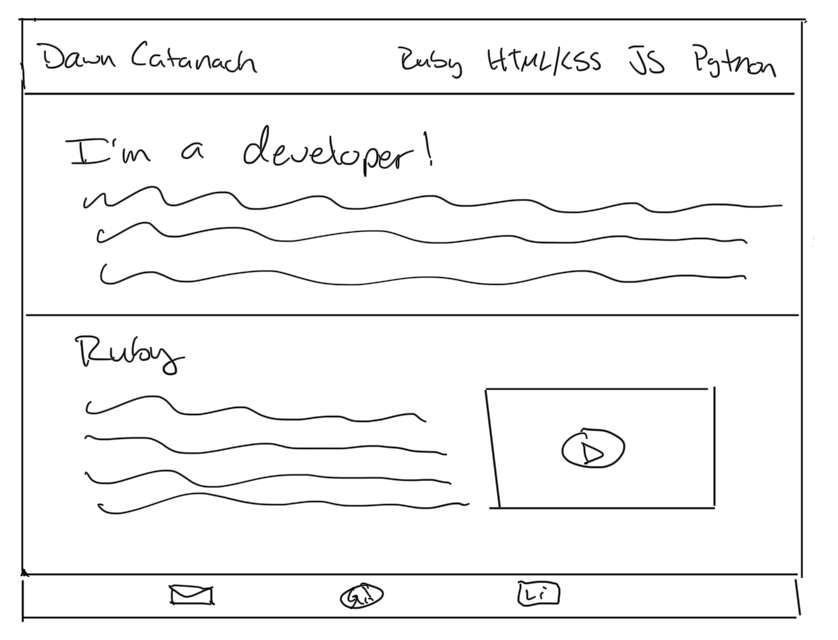 Dawn Catanach
Ruby HTML/CSS JS Python
I'm a developer!
Ruby
Git Li